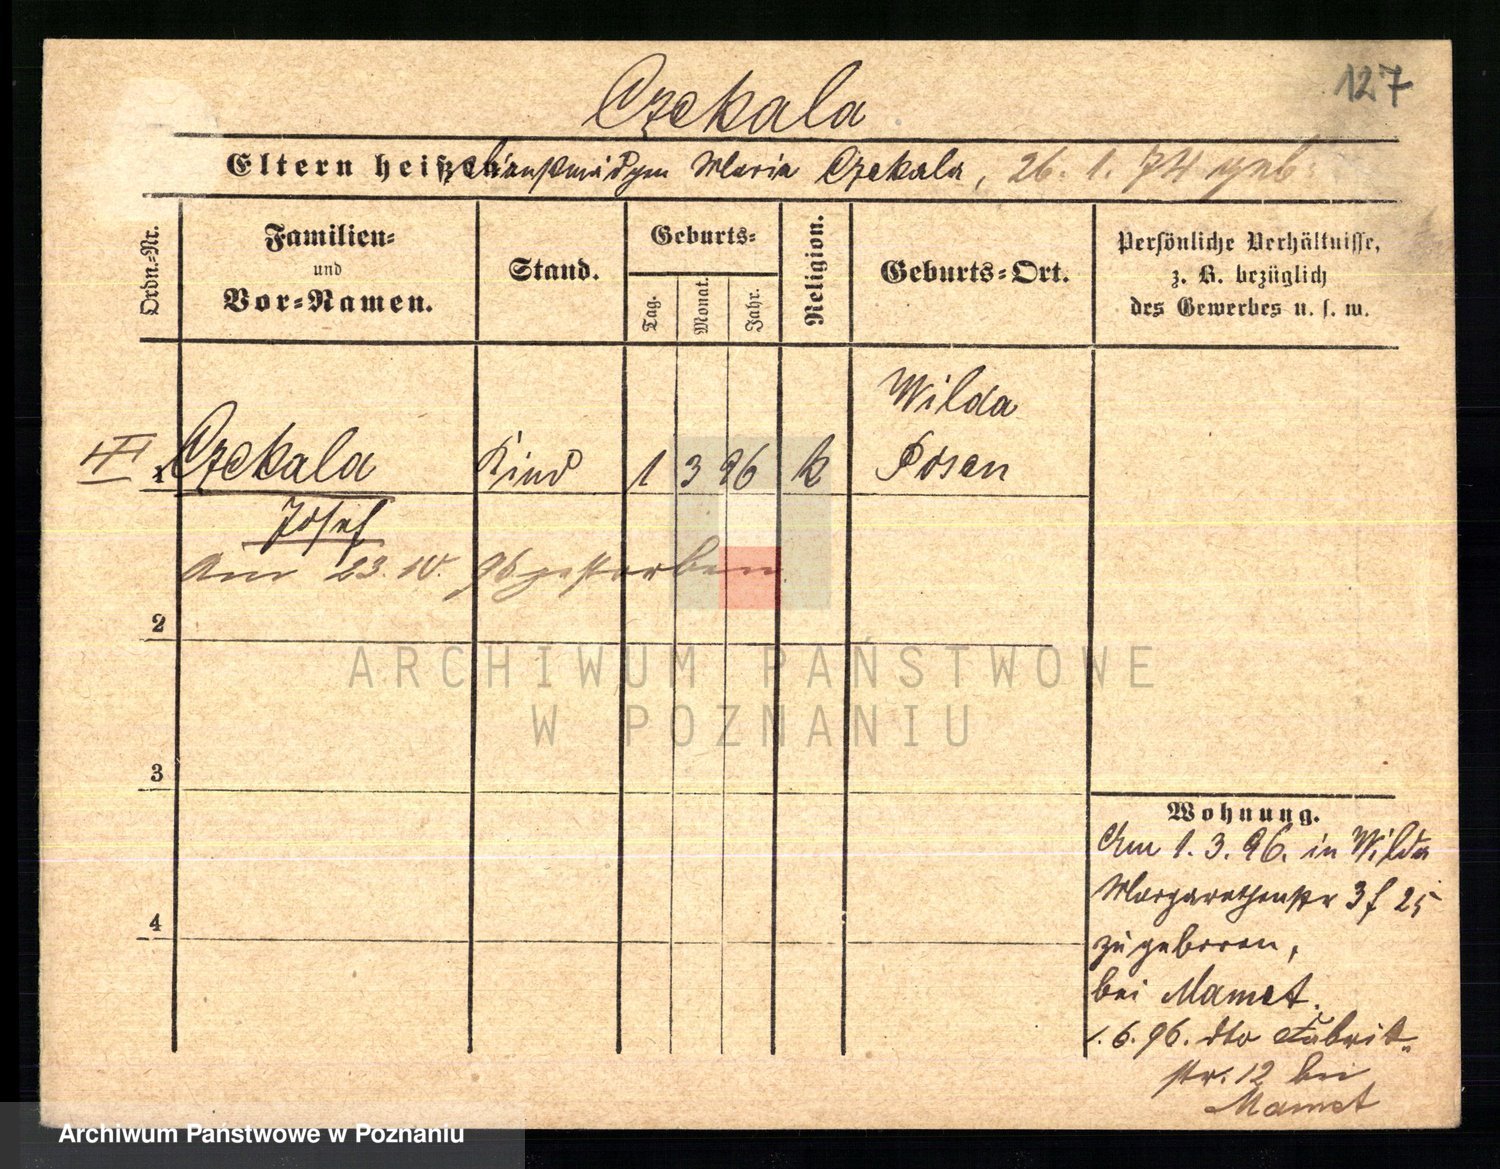 127
Czekala
Eltern heißen Dienstmädgen Maria Czekala, 26. 1. 74 geb.
Ordn.-Nr.
Familien-
und
Vor-Namen.
Stand.
Geburts-
Tag.
Monat.
Jahr.
Religion.
Geburts-Ort.
Persönliche Verhältnisse,
z. B. bezüglich
des Gewerbes u. s. w.
Wilda
III 1 Czekala Kind 1 3 96 k Posen
Josef
Am 23. 10. 96 gestorben
2
3
4
Wohnung.
Am 1. 3. 96. in Wilda
Margarethenstr 3 f 25
zugeboren,
bei Mamet.
1. 6. 96. dto Fabrik-
str. 12 bei
Mamet
ARCHIWUM PAŃSTWOWE
W POZNANIU
Archiwum Państwowe w Poznaniu